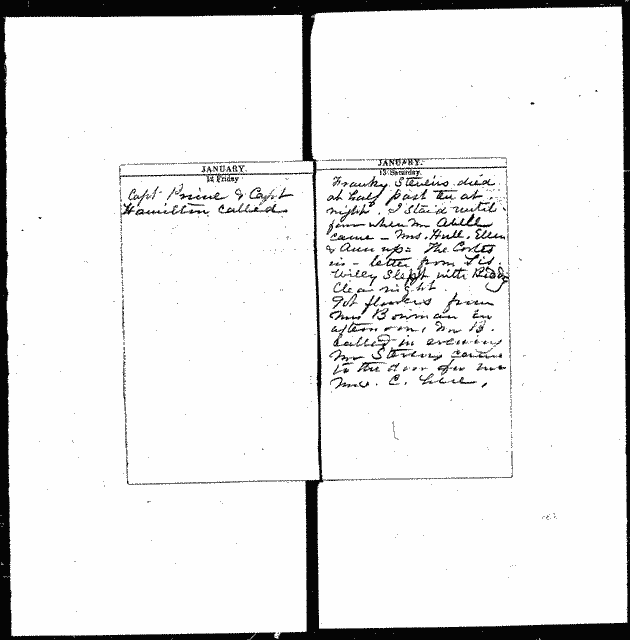 JANUARY.
12 Friday
Capt Prime & Capt
Hamilton called
JANUARY.
13 Saturday
Franky Stevens died
at half past ten at
night. I staid until
four when Mr
came - Mrs. Hull, Ellen
& Ann up = The Cortes
in - letter from Sis.
Willy Slept with
Clear night.
Got flowers from
Mrs Bowman in
afternoon, Mr B.
called in evening
Mr Stevens came
to the door for me
Mrs. C. here,